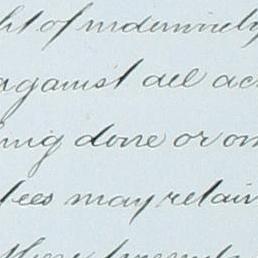 ht of indemnity
against all ac
ing done or om
tees may retain